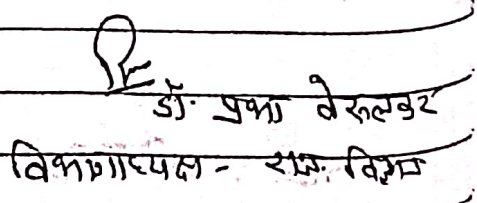 डॉ. प्रभा वेरुलकर
विभागाध्यक्ष - राज. विज्ञान